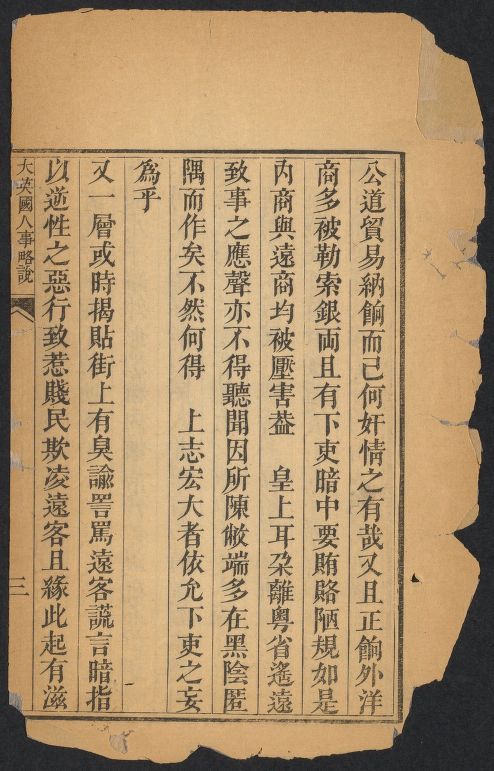 公道貿易納餉而己何奸情之有哉又且正餉外洋
商多被勒索銀両且有下吏暗中要賄賂陋規如是
内商與遠商均被壓害葢　皇上耳朶離粤省遙遠
致事之應聲亦不得聽聞因所陳敝端多在黑陰匿
隅而作矣不然何得　上志宏大者依允下吏之妄
爲乎
又一層或時揭貼街上有臭諭詈罵遠客謊言暗指
以逆性之惡行致惹賤民欺凌遠客且緣此起有滋
大英國人事略說
三